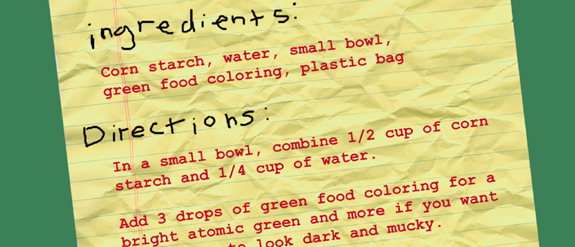 ingredients:
Corn starch, water, small bowl,
green food coloring, plastic bag
Directions:
In a small bowl, combine 1/2 cup of corn
starch and 1/4 cup of water.
Add 3 drops of green food coloring for a
bright atomic green and more if you want
to look dark and mucky.